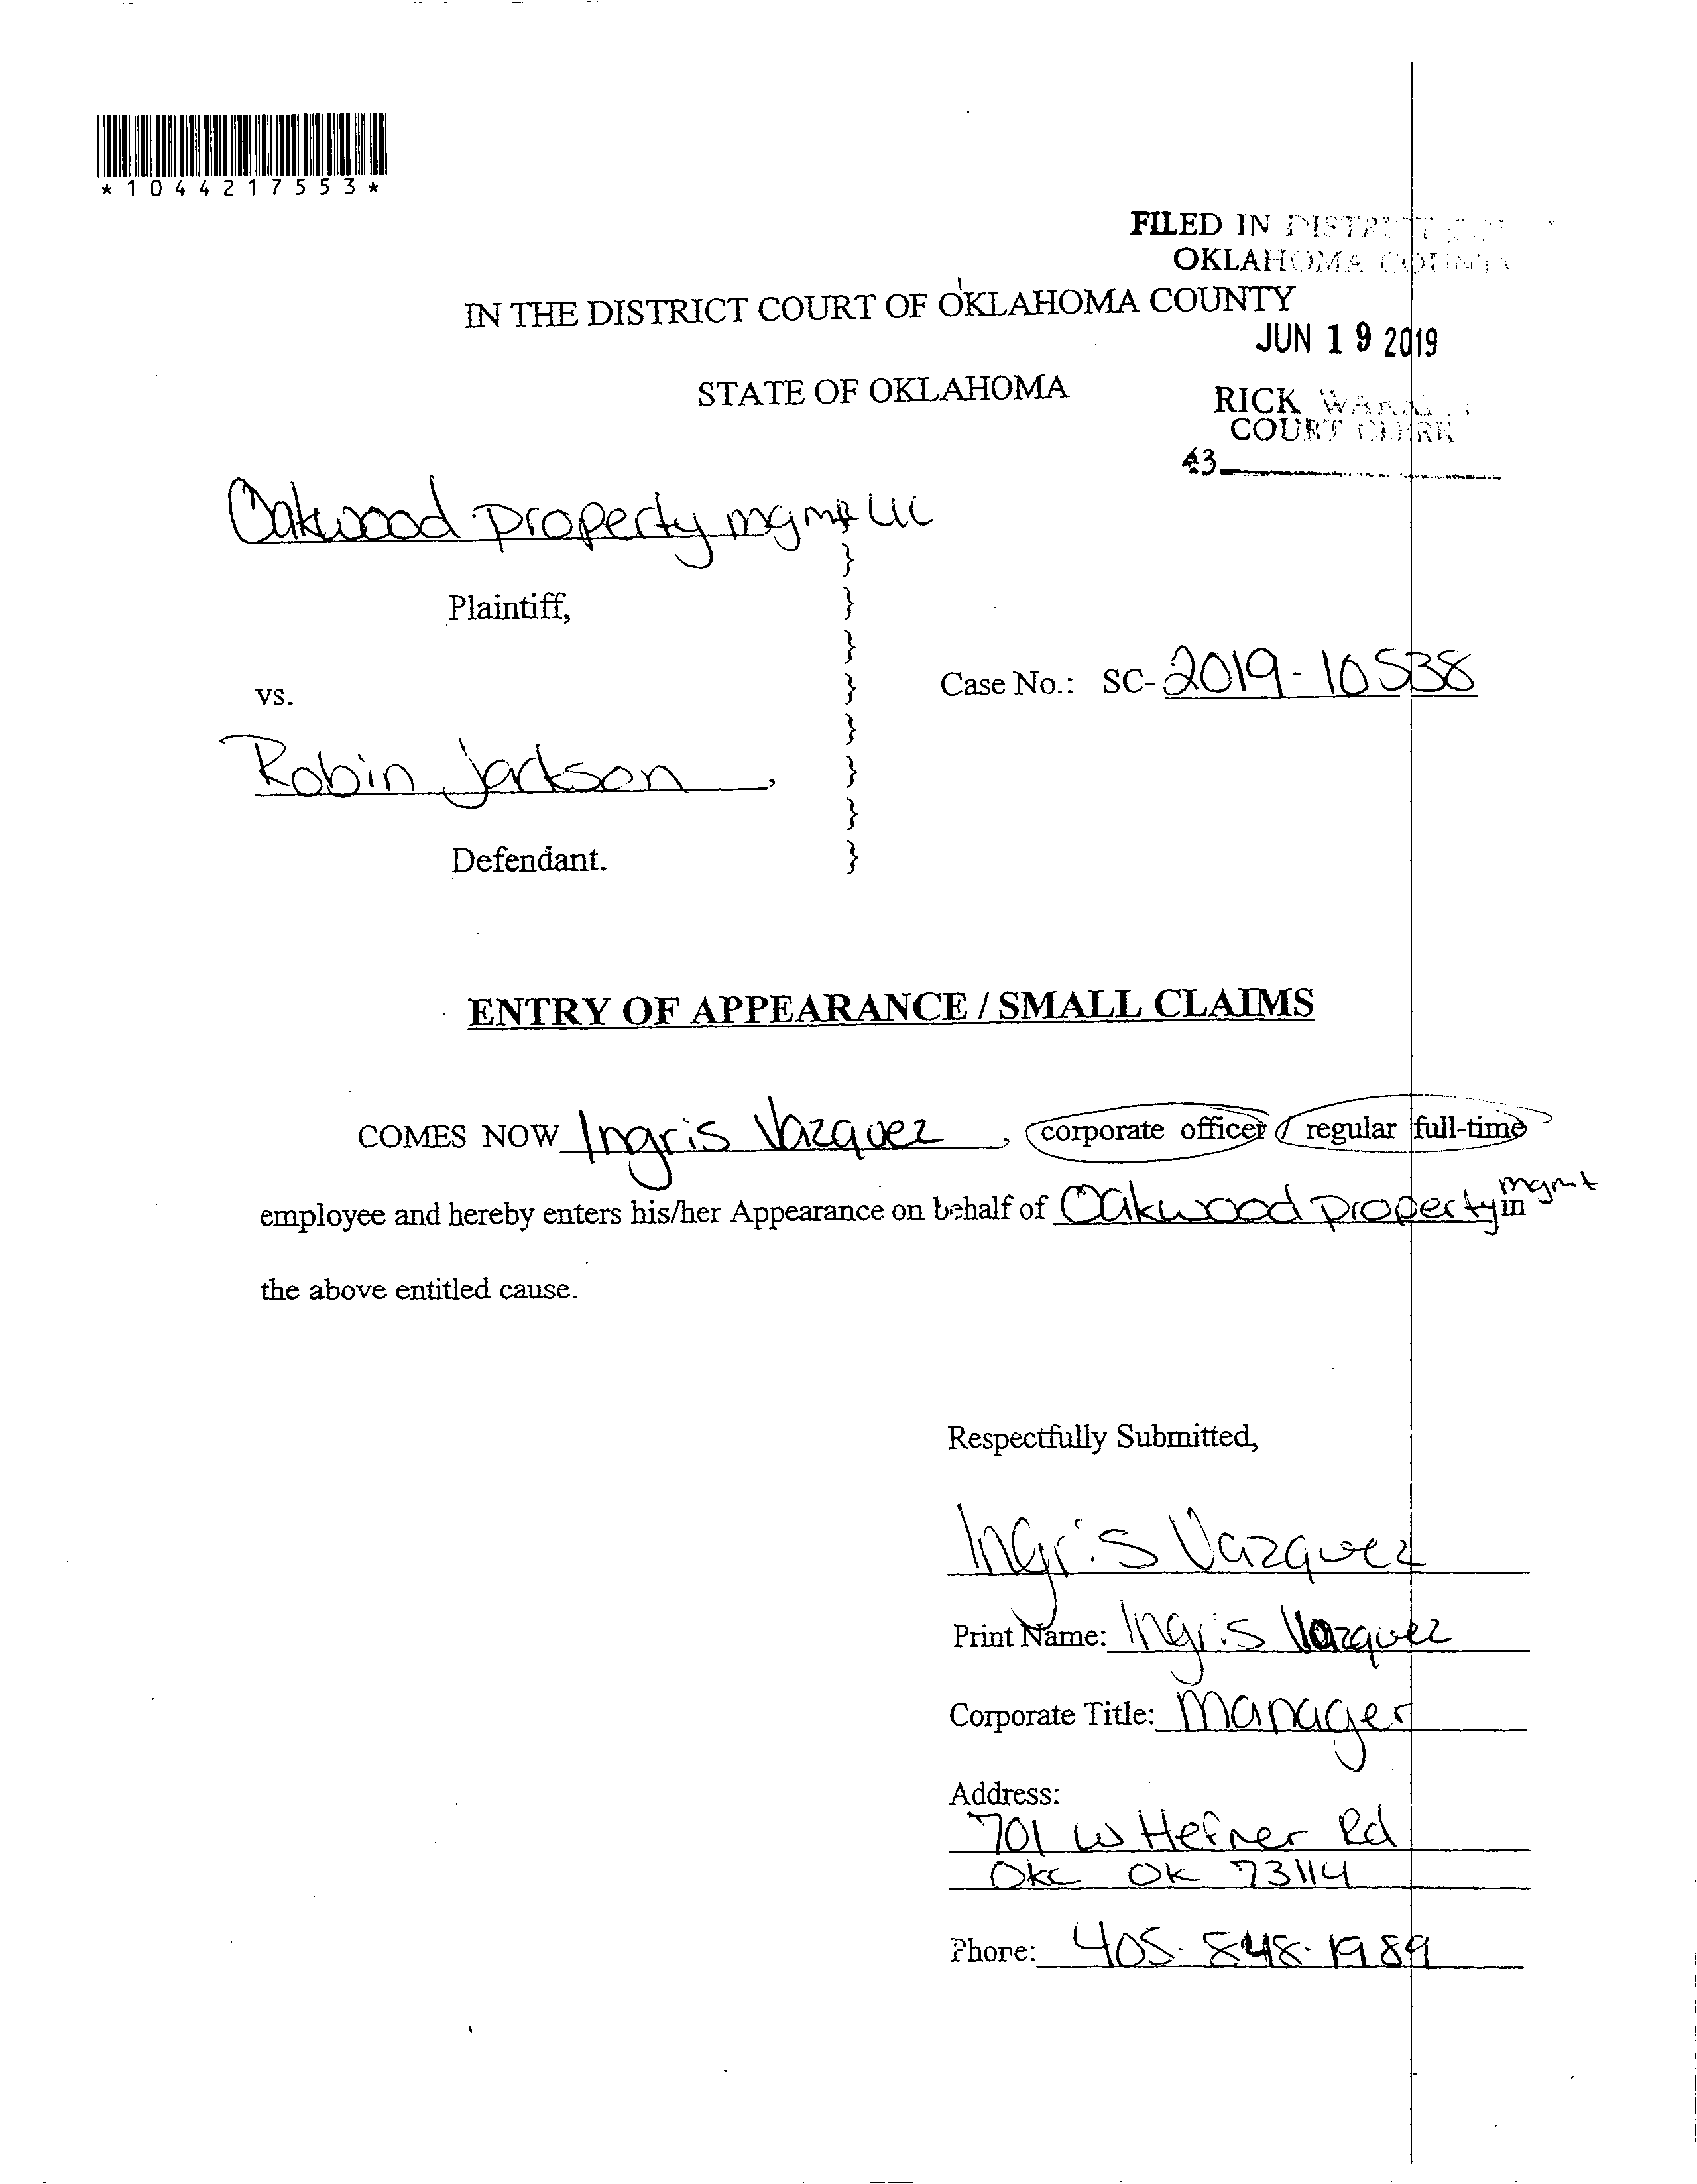 *1044217553*
FILED IN DISTRICT
OKLAHOMA COUNTY
IN THE DISTRICT COURT OF OKLAHOMA COUNTY
JUN 19 2019
STATE OF OKLAHOMA
RICK WARREN
COURT CLERK
43
Oakwood property mgmt LLC
}
Plaintiff, }
}
Case No.: SC-2019-10538
vs. }
}
Robin Jackson, }
}
Defendant. }
ENTRY OF APPEARANCE / SMALL CLAIMS
COMES NOW Ingris Vazquez, corporate officer / regular full-time
employee and hereby enters his/her Appearance on behalf of Oakwood property mgmt in
the above entitled cause.
Respectfully Submitted,
Ingris Vazquez
Print Name: Ingris Vazquez
Corporate Title: Manager
Address:
701 W Hefner Rd
Okc OK 73114
Phone: 405-848-1989